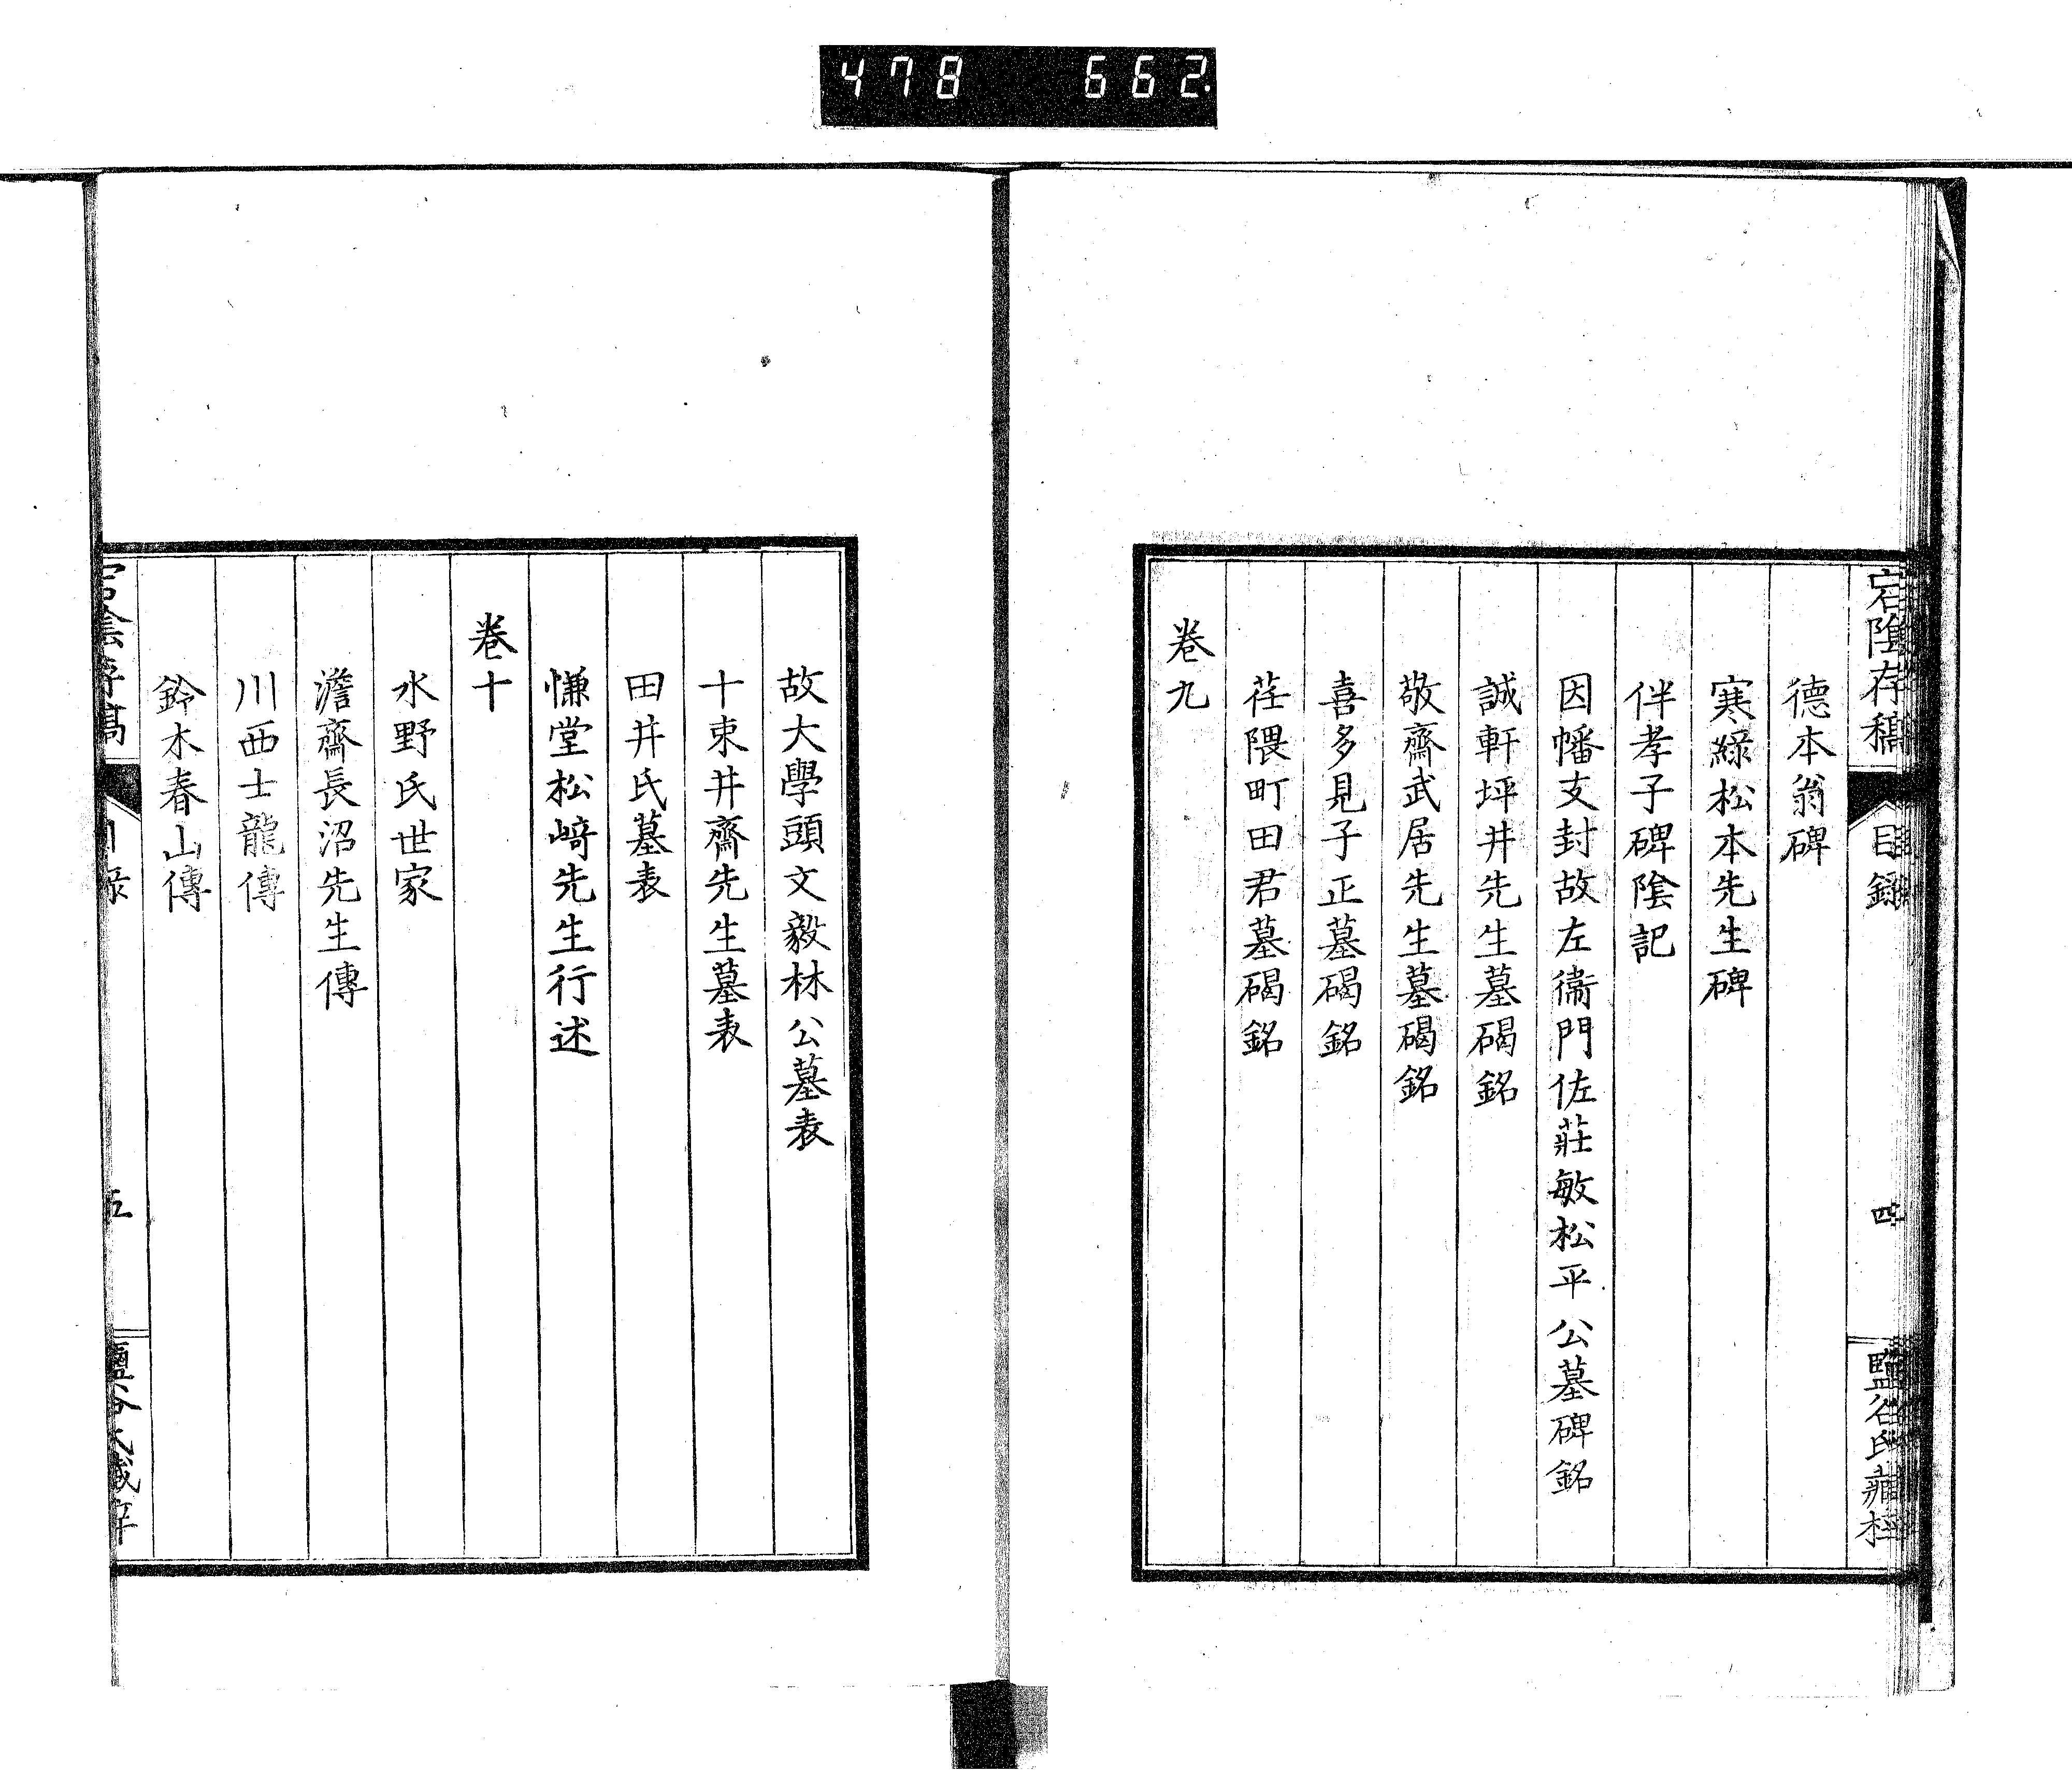 478 662
宕陰存稿 目錄 四 鹽谷氏藏梓
德本翁碑
寒綠松本先生碑
伴孝子碑陰記
因幡支封故左衞門佐莊敏松平公墓碑銘
誠軒坪井先生墓碣銘
敬齋武居先生墓碣銘
喜多見子正墓碣銘
荏隈町田君墓碣銘
卷九
故大學頭文毅林公墓表
十束井齋先生墓表
田井氏墓表
慊堂松﨑先生行述
卷十
水野氏世家
澹齋長沼先生傳
川西士龍傳
鈴木春山傳
宕陰存稿 目錄 五 鹽谷氏藏梓